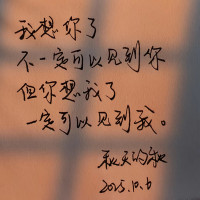 我想你了
不一定可以见到你
但你想我了
一定可以见到我。
2025.10.6